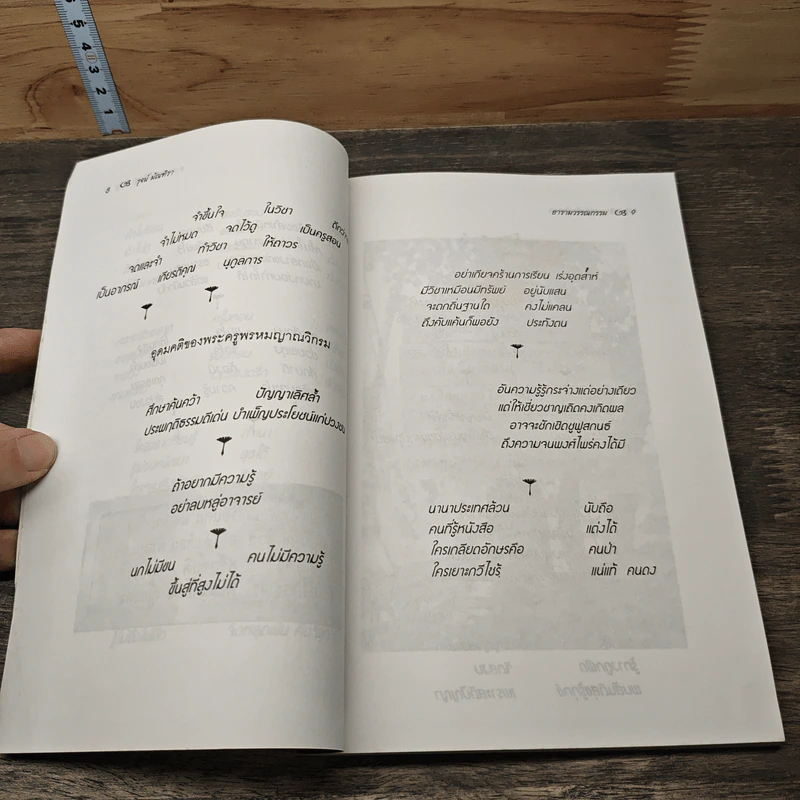 5
4
3
2
1
8 รุจน์ มัณฑิรา
จำขึ้นใจ ในวิชา
จำไม่หมด จดไว้ดู เป็นครูสอน
จดและจำ ทำวิชา ให้ถาวร
เป็นอาภรณ์ เกียรติคุณ นุกูลการ
อุดมคติของพระครูพรหมญาณวิกรม
ศึกษาค้นคว้า ปัญญาเลิศล้ำ
ประพฤติธรรมดีเด่น บำเพ็ญประโยชน์แก่ปวงชน
ถ้าอยากมีความรู้
อย่าลบหลู่อาจารย์
นกไม่มีขน คนไม่มีความรู้
ขึ้นสู่ที่สูงไม่ได้
อารามวรรณกรรม 9
อย่าเกียจคร้านการเรียน เร่งอุตส่าห์
มีวิชาเหมือนมีทรัพย์ อยู่นับแสน
จะตกถิ่นฐานใด คงไม่แคลน
ถึงคับแค้นก็พอยัง ประทังตน
อันความรู้รู้กระจ่างแต่อย่างเดียว
แต่ให้เชี่ยวชาญเถิดคงเกิดผล
อาจจะชักเชิดชูฟูสกนธ์
ถึงความจนพงศ์ไพร่คงได้มี
นานาประเทศล้วน นับถือ
คนที่รู้หนังสือ แต่งได้
ใครเกลียดอักษรคือ คนป่า
ใครเยาะกวีไซร้ แน่แท้ คนดง